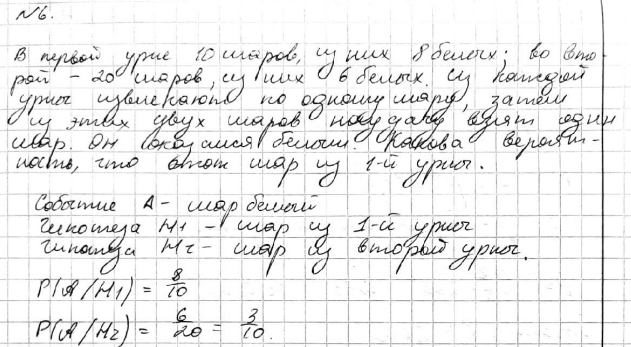 №6.
В первой урне 10 шаров, из них 8 белых; во вто-
рой - 20 шаров, из них 6 белых. Из каждой
урны извлекают по одному шару, затем
из этих двух шаров наудачу взят один
шар. Он оказался белым. Какова вероят-
ность, что этот шар из 1-й урны.
Событие A - шар белый
Гипотеза H1 - шар из 1-й урны
Гипотеза H2 - шар из второй урны.
P(A/H1) = 8/10
P(A/H2) = 6/20 = 3/10.